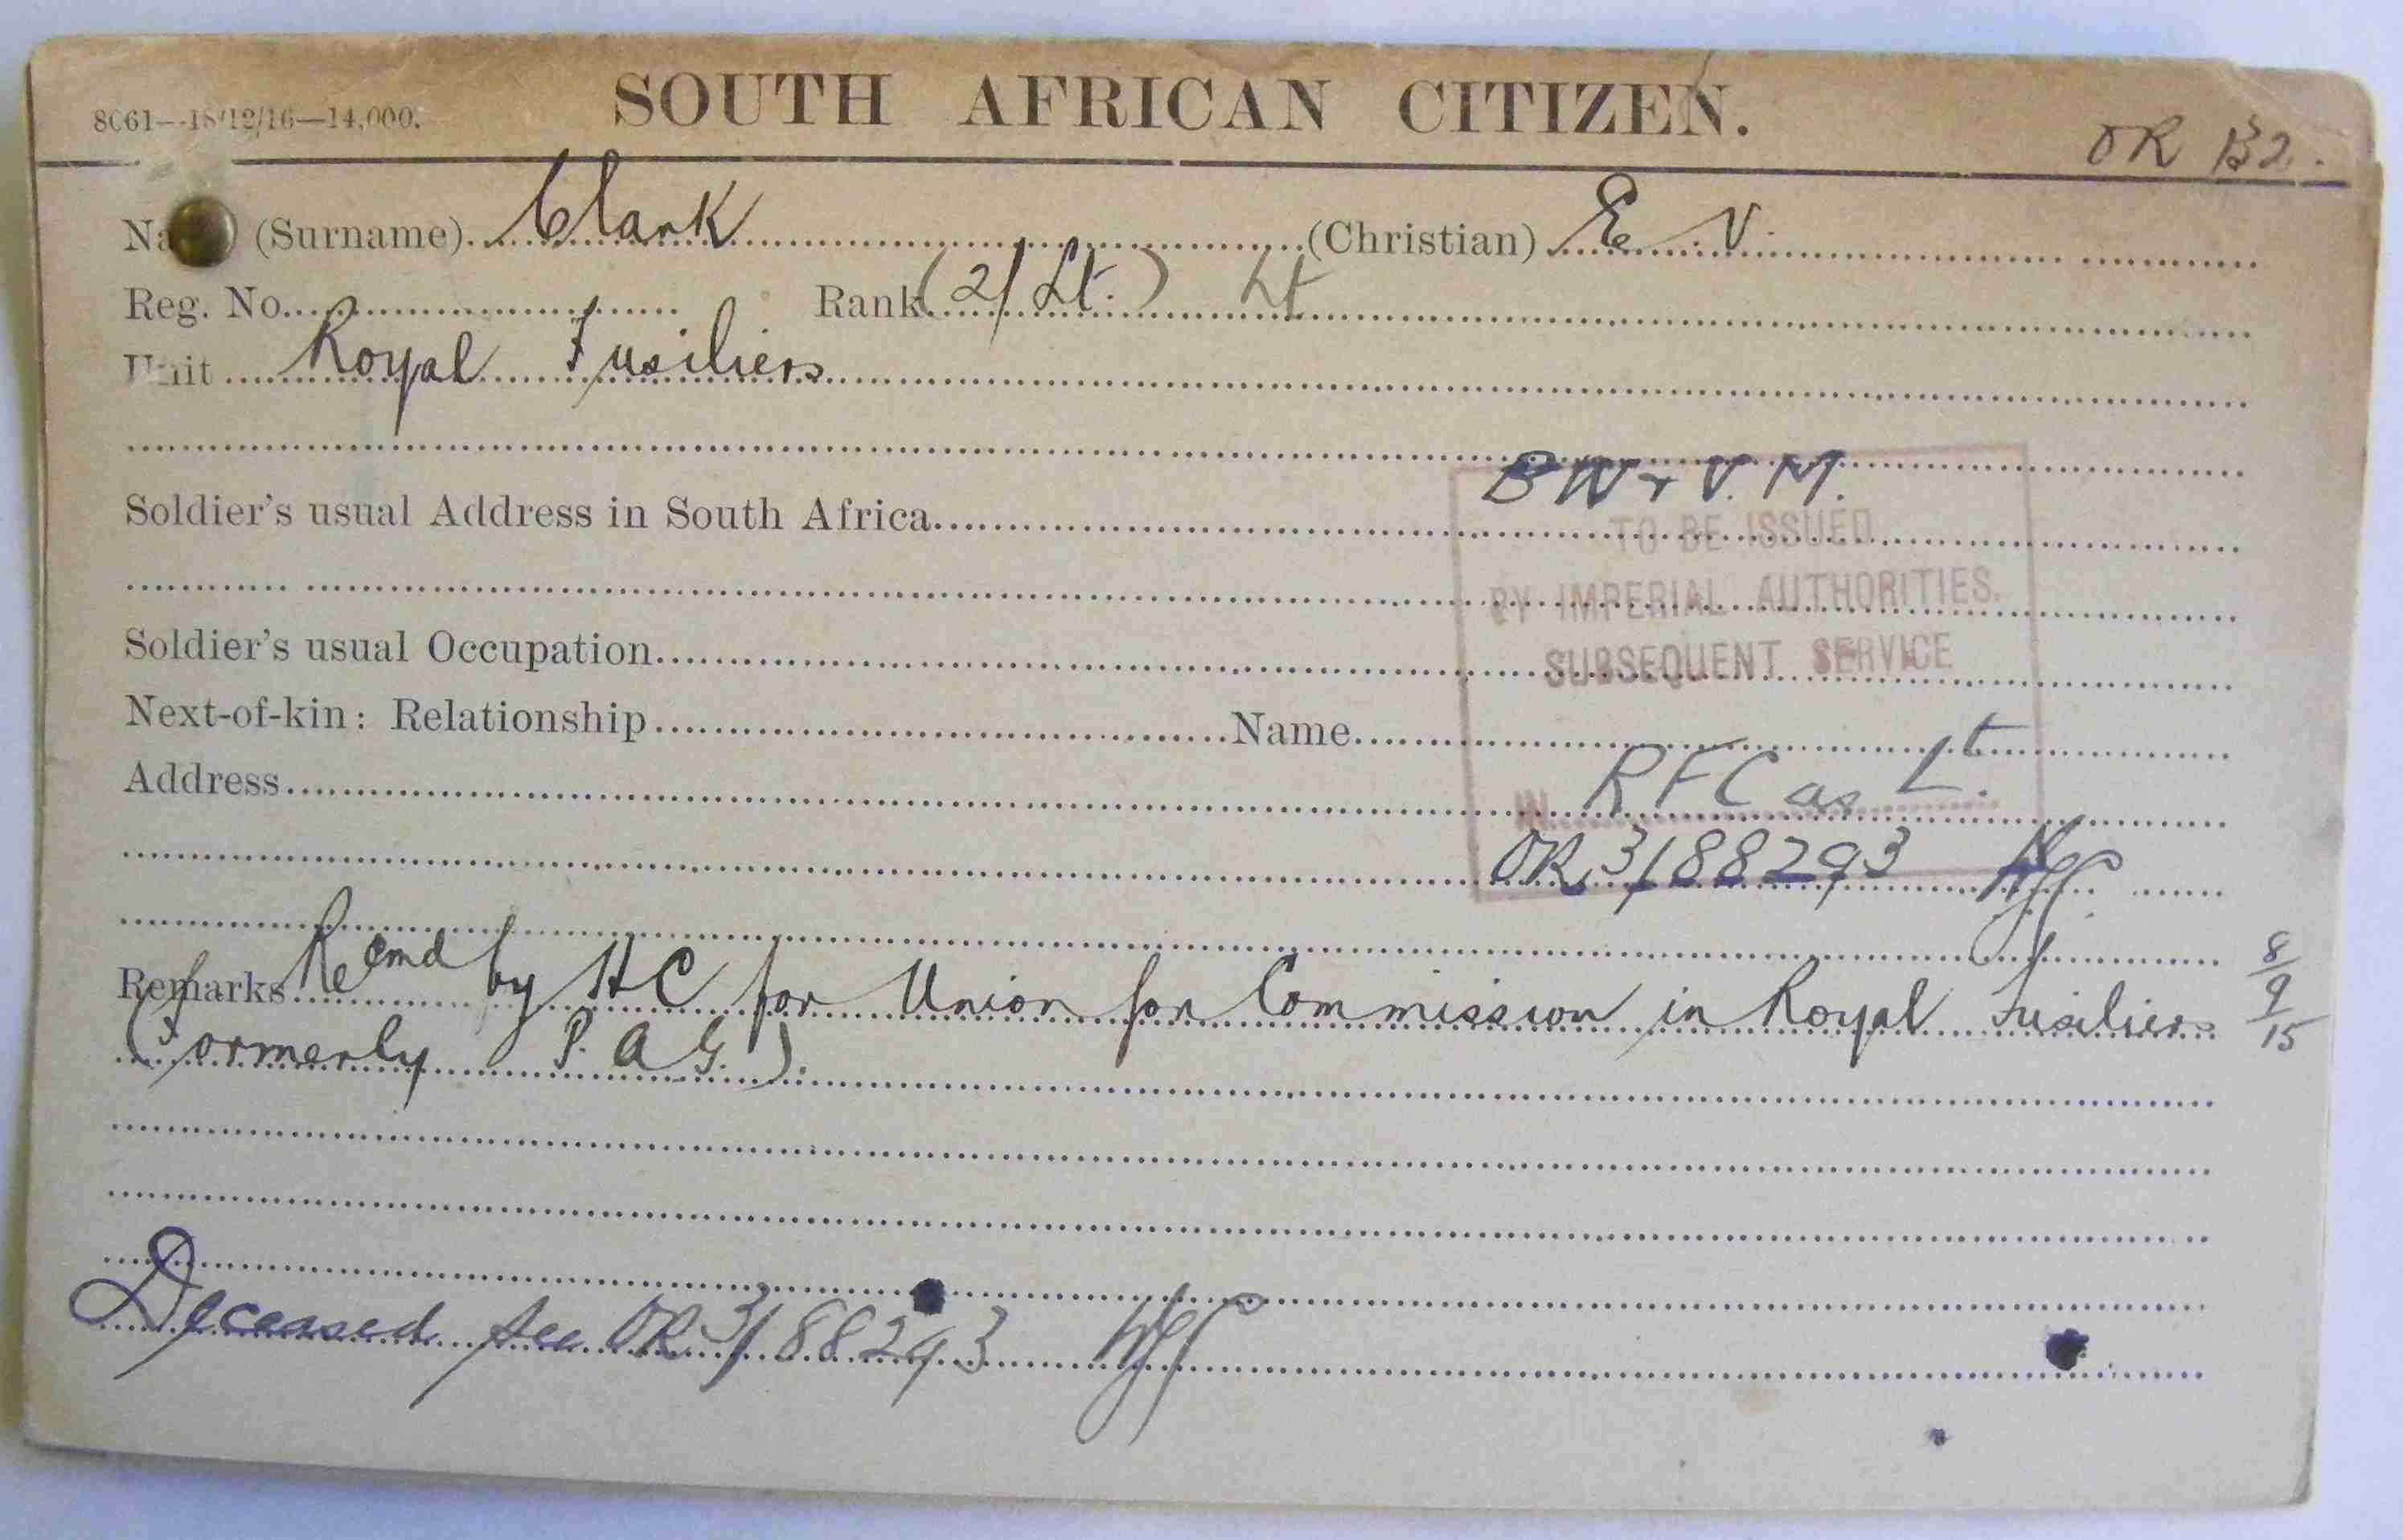 8061—18/12/16—14,000.
SOUTH AFRICAN CITIZEN.
OR B2.
(Surname) Clark (Christian) E. V.
Reg. No. Rank (2/Lt.) Lt
Unit Royal Fusiliers
BW + V. M.
Soldier's usual Address in South Africa
TO BE ISSUED
BY IMPERIAL AUTHORITIES.
Soldier's usual Occupation
SUBSEQUENT SERVICE
Next-of-kin: Relationship Name
Address
IN RFC as Lt.
OR 3/88293
Remarks Recmd by HC for Union for Commission in Royal Fusiliers 8/9/15
(formerly P. A G.).
Deceased see OR 3/88293